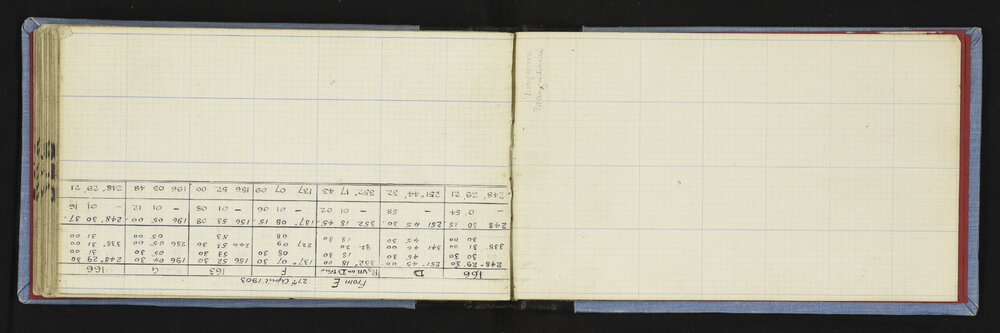 From E 27th April 1903
166 D R. VII on D line F 163 G 166
248° 29' 30 251° 45 00 352° 18 00 137° 07 30 156 52 30 196 04 30 248° 29 30
30 30 45 30 08 30 53 30 31 00
338. 31 00 92. 227 09 246 53 30 286 05 00 338° 31 00
30 00 45 30 18 30 08 05 00 31 00
248 30 15 251 45 30 352 18 45 137° 08 15 156 53 08 196 05 00 248° 30' 37
– 0' 54 – 58 – 01 02 – 01 06 – 01 08 – 01 12 – 01 16
248° 29 21 251° 44' 32 352° 17 43 137 07 09 156 52 00 196 03 48 248° 29' 21